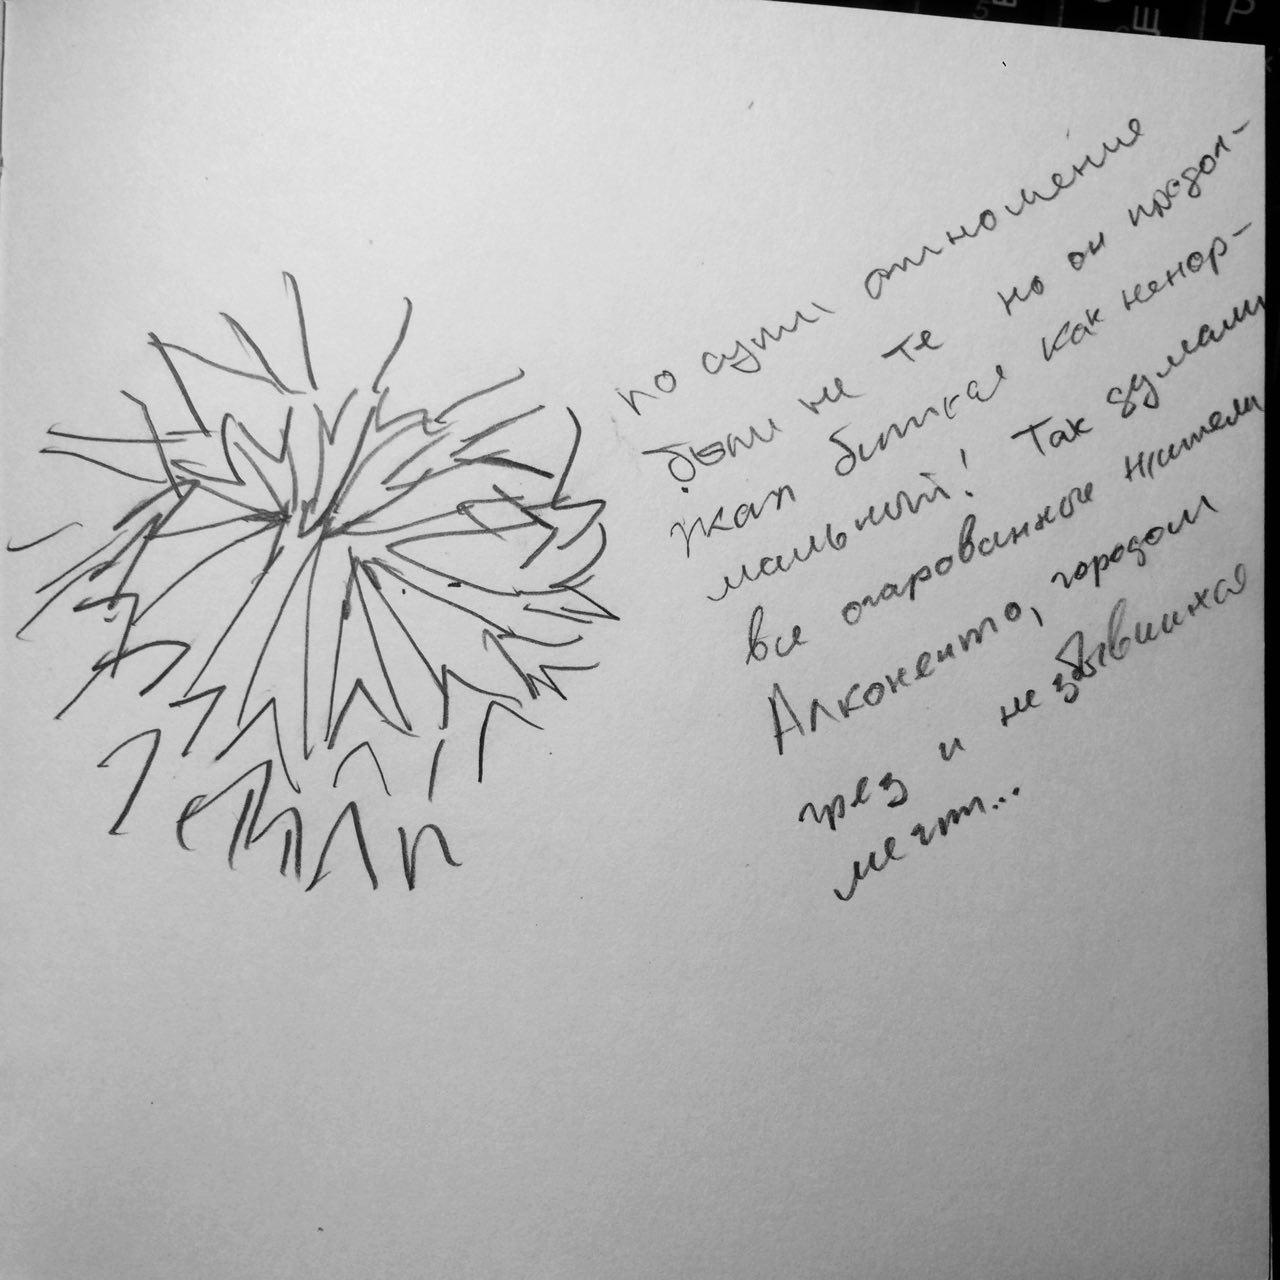 по сути отношения
были не те но он продол-
жал биться как ненор-
мальный! Так думали
все очарованные жители
Алконенто, городом
грез и не збывшихся
мечт...